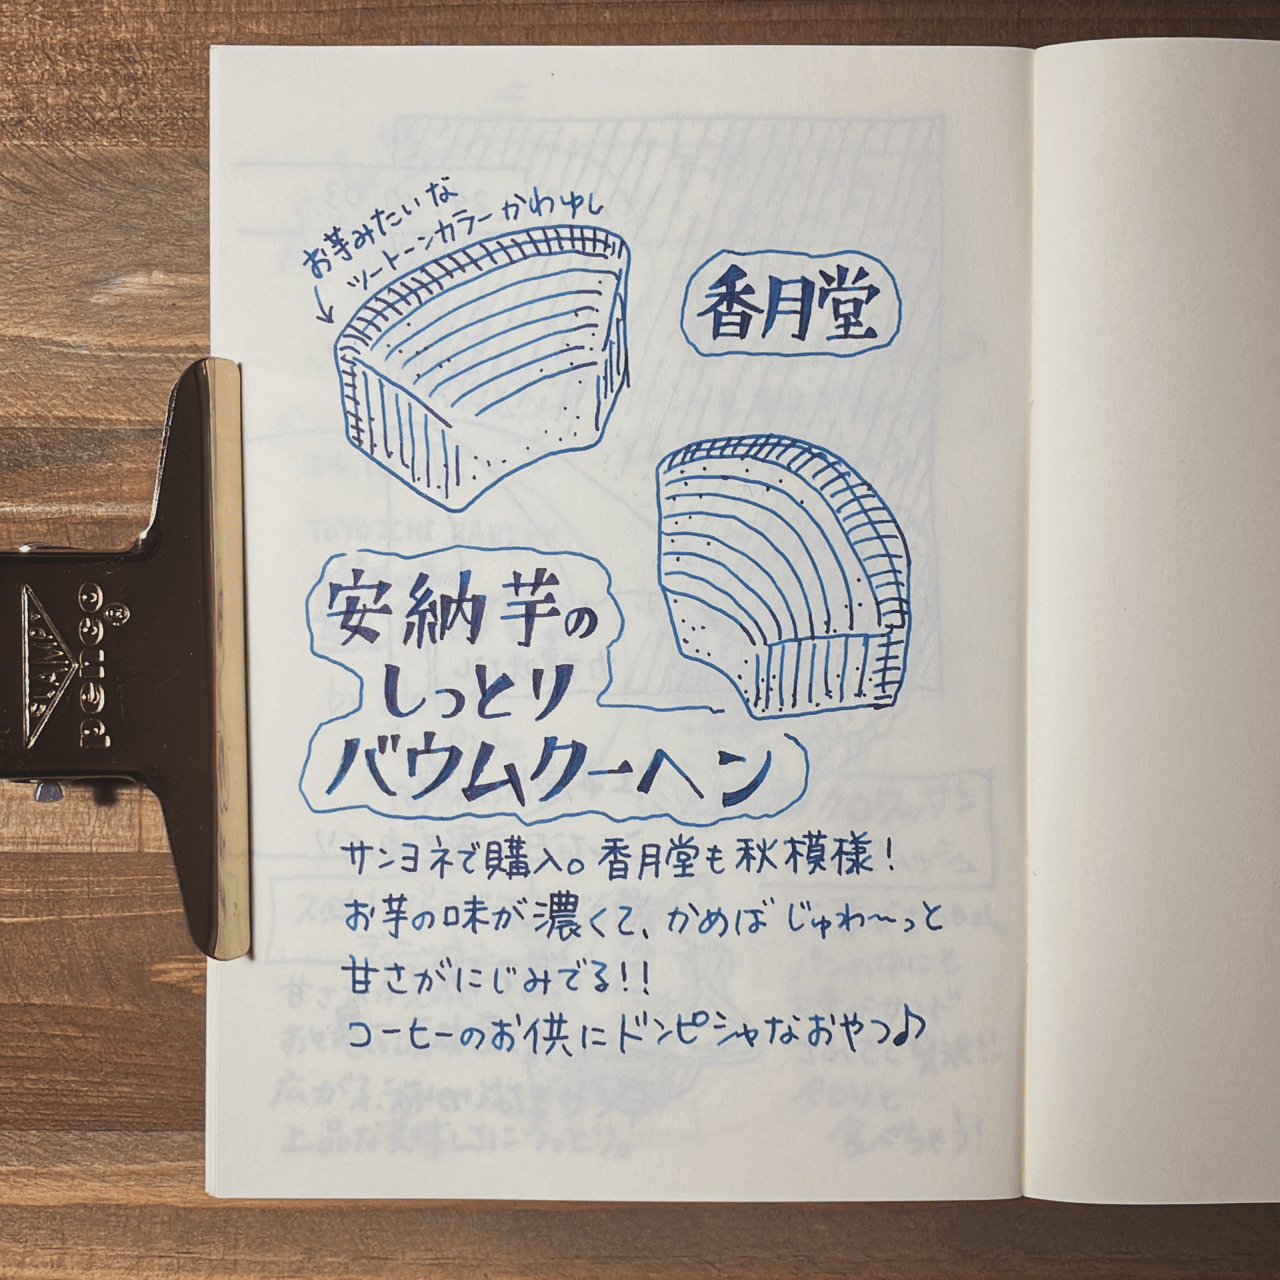 お芋みたいな
ツートーンカラーかわゆし
香月堂
安納芋の
しっとり
バウムクーヘン
サンヨネで購入。香月堂も秋模様!
お芋の味が濃くて、かめばじゅわ〜っと
甘さがにじみでる!!
コーヒーのお供にドンピシャなおやつ♪
STAMP
penco®